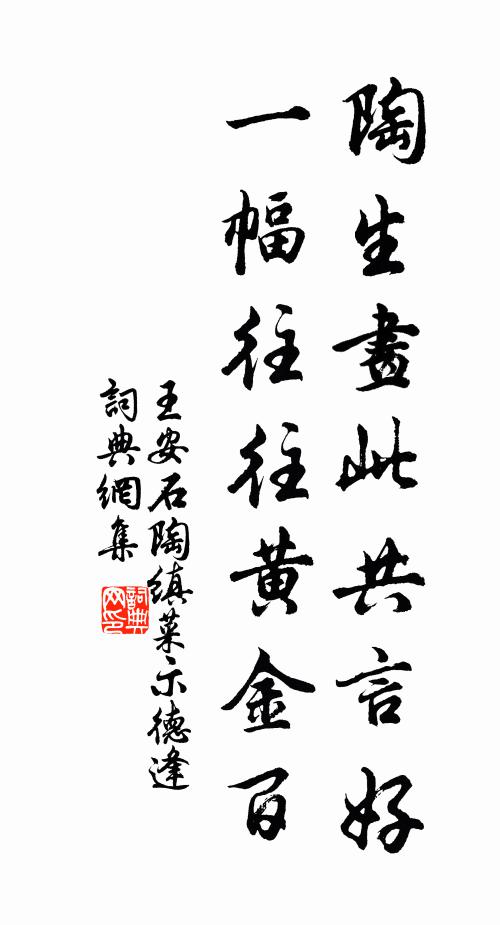 陶生畫此共言好
一幅往往黃金百
王安石陶縝菜示德逢
詞典網集
詞典網印